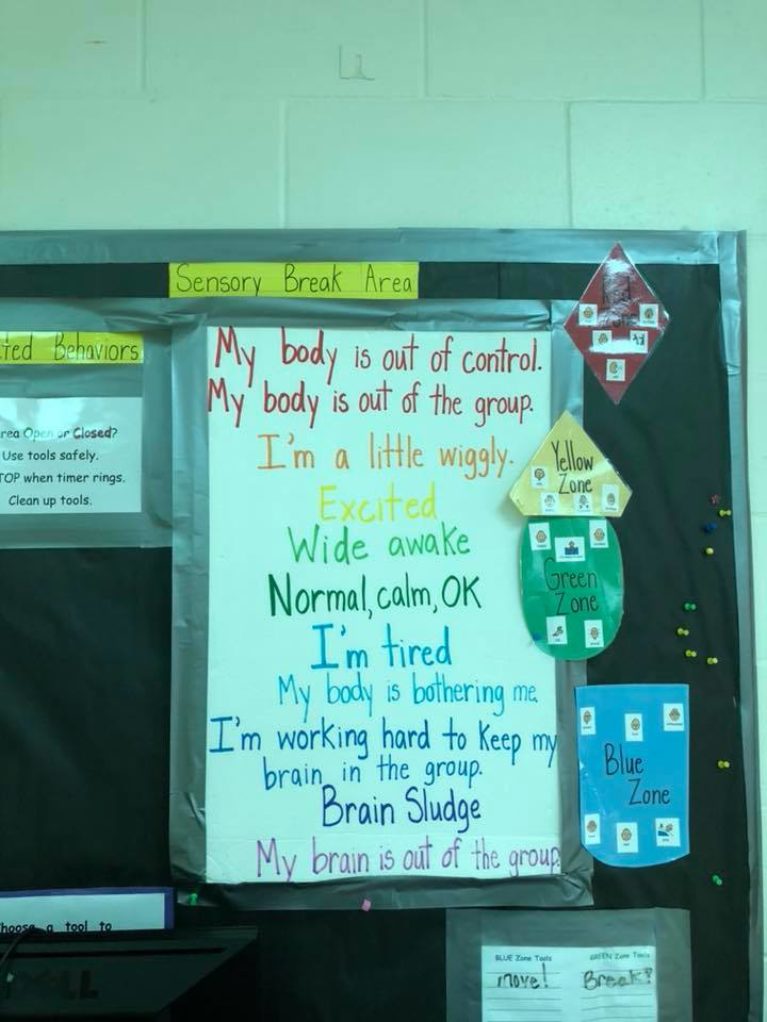 Sensory Break Area
ted Behaviors
rea Open or Closed?
Use tools safely.
TOP when timer rings.
Clean up tools.
My body is out of control.
My body is out of the group.
I'm a little wiggly.
Excited
Wide awake
Normal, calm, OK
I'm tired
My body is bothering me.
I'm working hard to keep my
brain in the group.
Brain Sludge
My brain is out of the group
Red
Zone
Yellow
Zone
Green
Zone
Blue
Zone
hoose a tool to
DELL
BLUE Zone Tools
Move!
GREEN Zone Tools
Break?